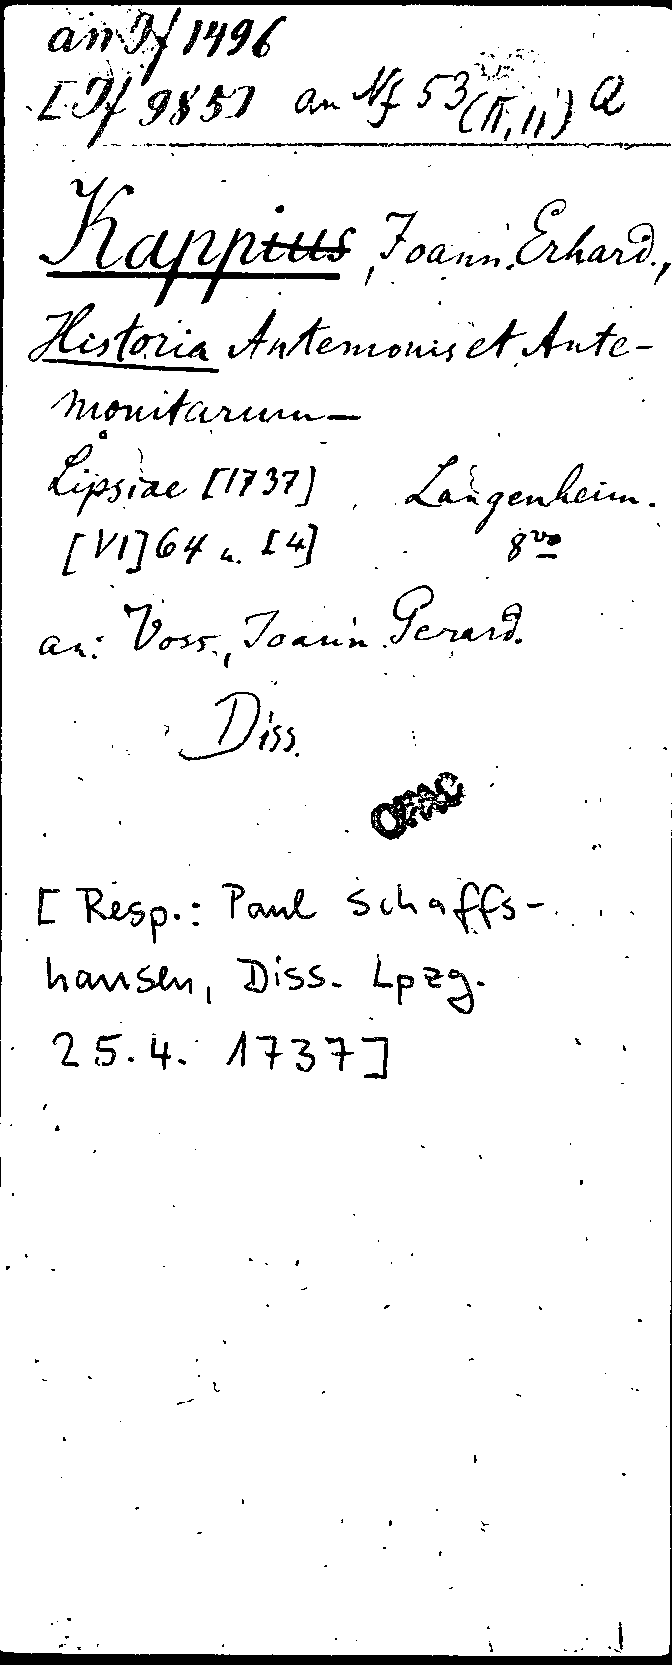 an If 1496
[If 985] an Nf 53 (II, 11) a
Kappius, Joann. Erhard.,
Historia Artemonis et Arte-
monitarum —
Lipsiae [1737] Langenheim.
[VI] 64 u. [4] 8vo
an: Voss., Joann. Gerard.
Diss.
OPAC
[Resp.: Paul Schaffs-
hausen, Diss. Lpzg.
25.4. 1737]